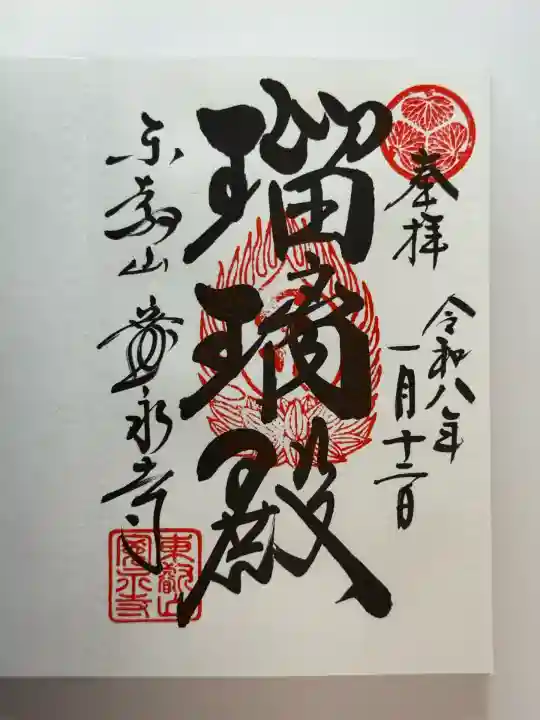 奉拝
令和八年
一月十二日
瑠璃殿
東叡山 寛永寺
東叡山
寛永寺